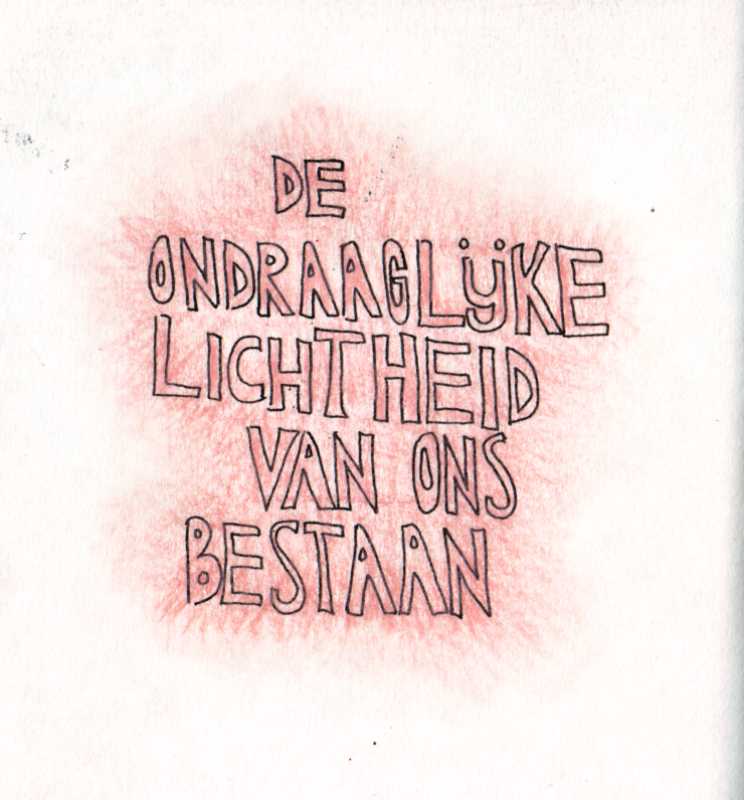 DE
ONDRAAGLIJKE
LICHTHEID
VAN ONS
BESTAAN